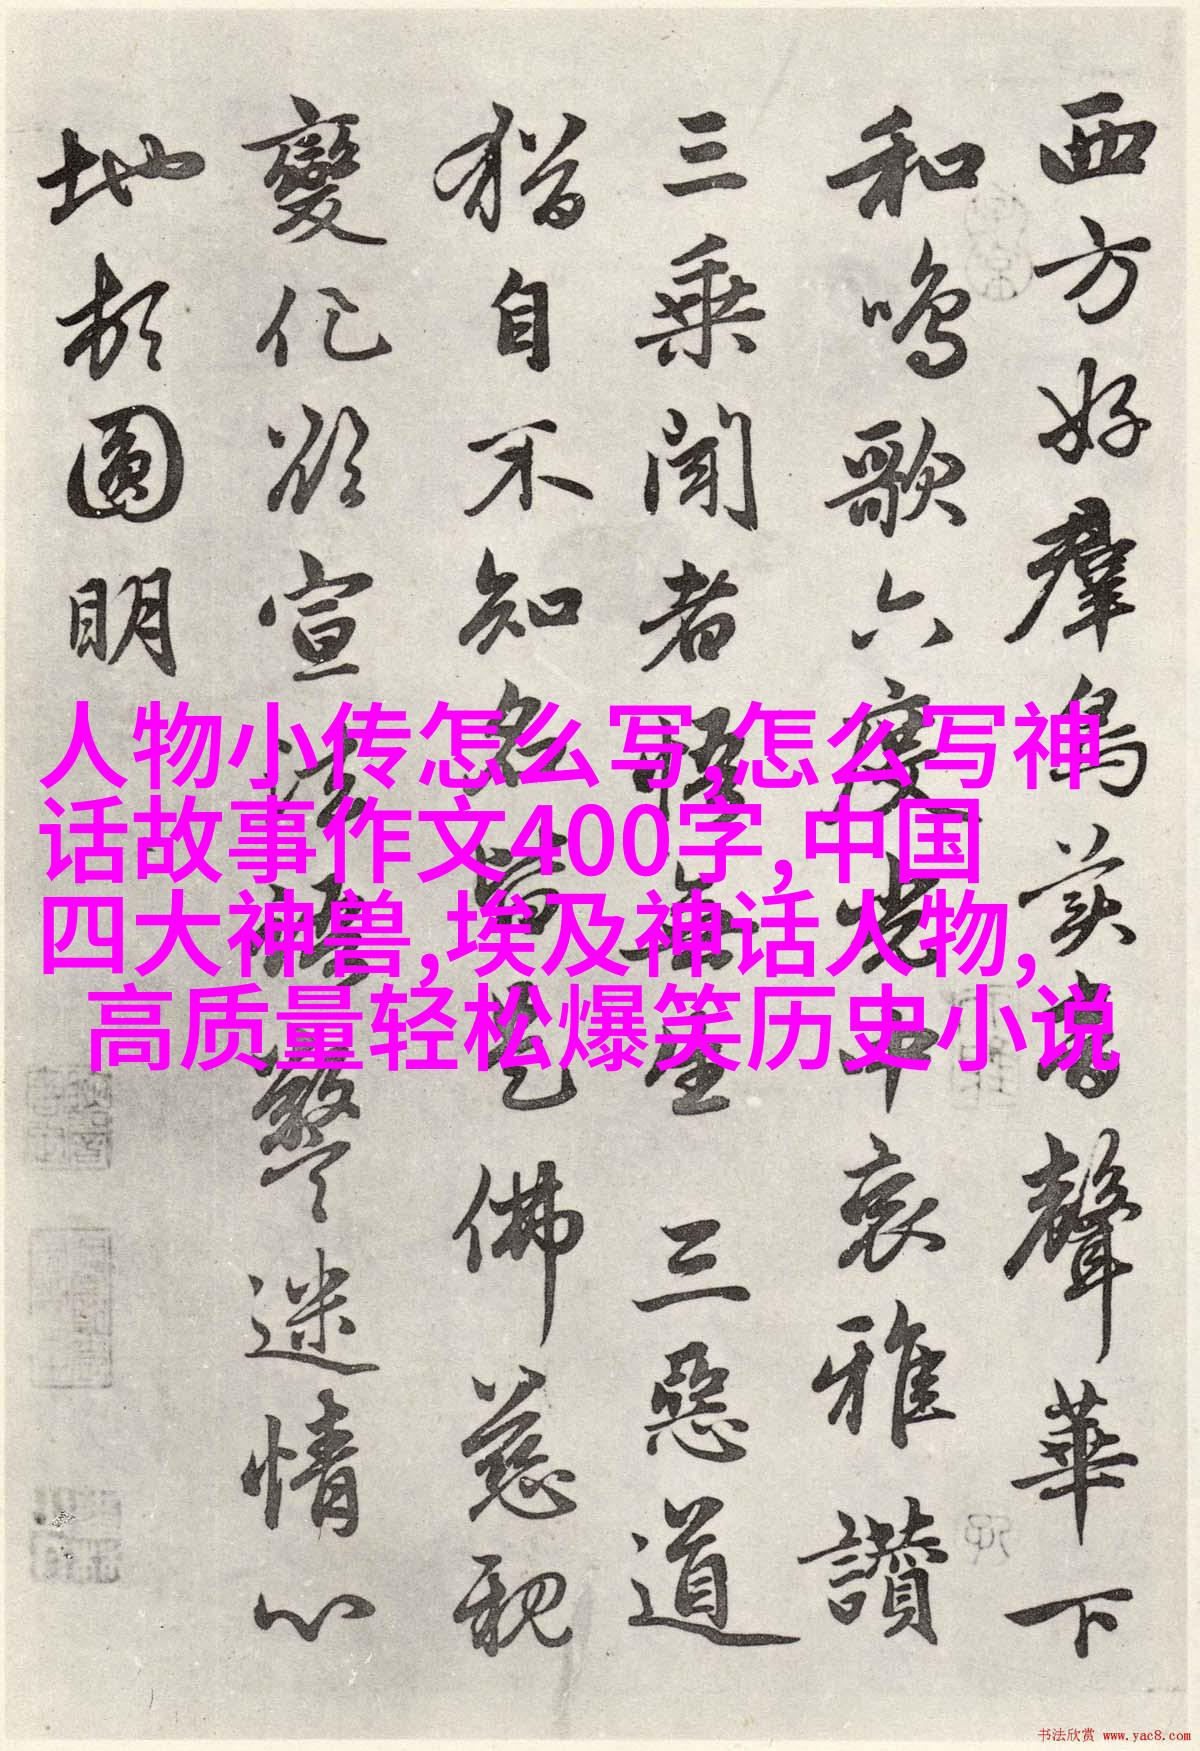 西方好羣鳥美音聲華下
和鳴歌六度光中哀雅讚
三乘聞者悟無生三惡道
猶自不知名皆是佛慈親
變化欲宣法語警迷情心
地頓圓明
人物小传怎么写,怎么写神
话故事作文400字,中国
四大神兽,埃及神话人物,
高质量轻松爆笑历史小说
书法欣赏 www.yac8.com